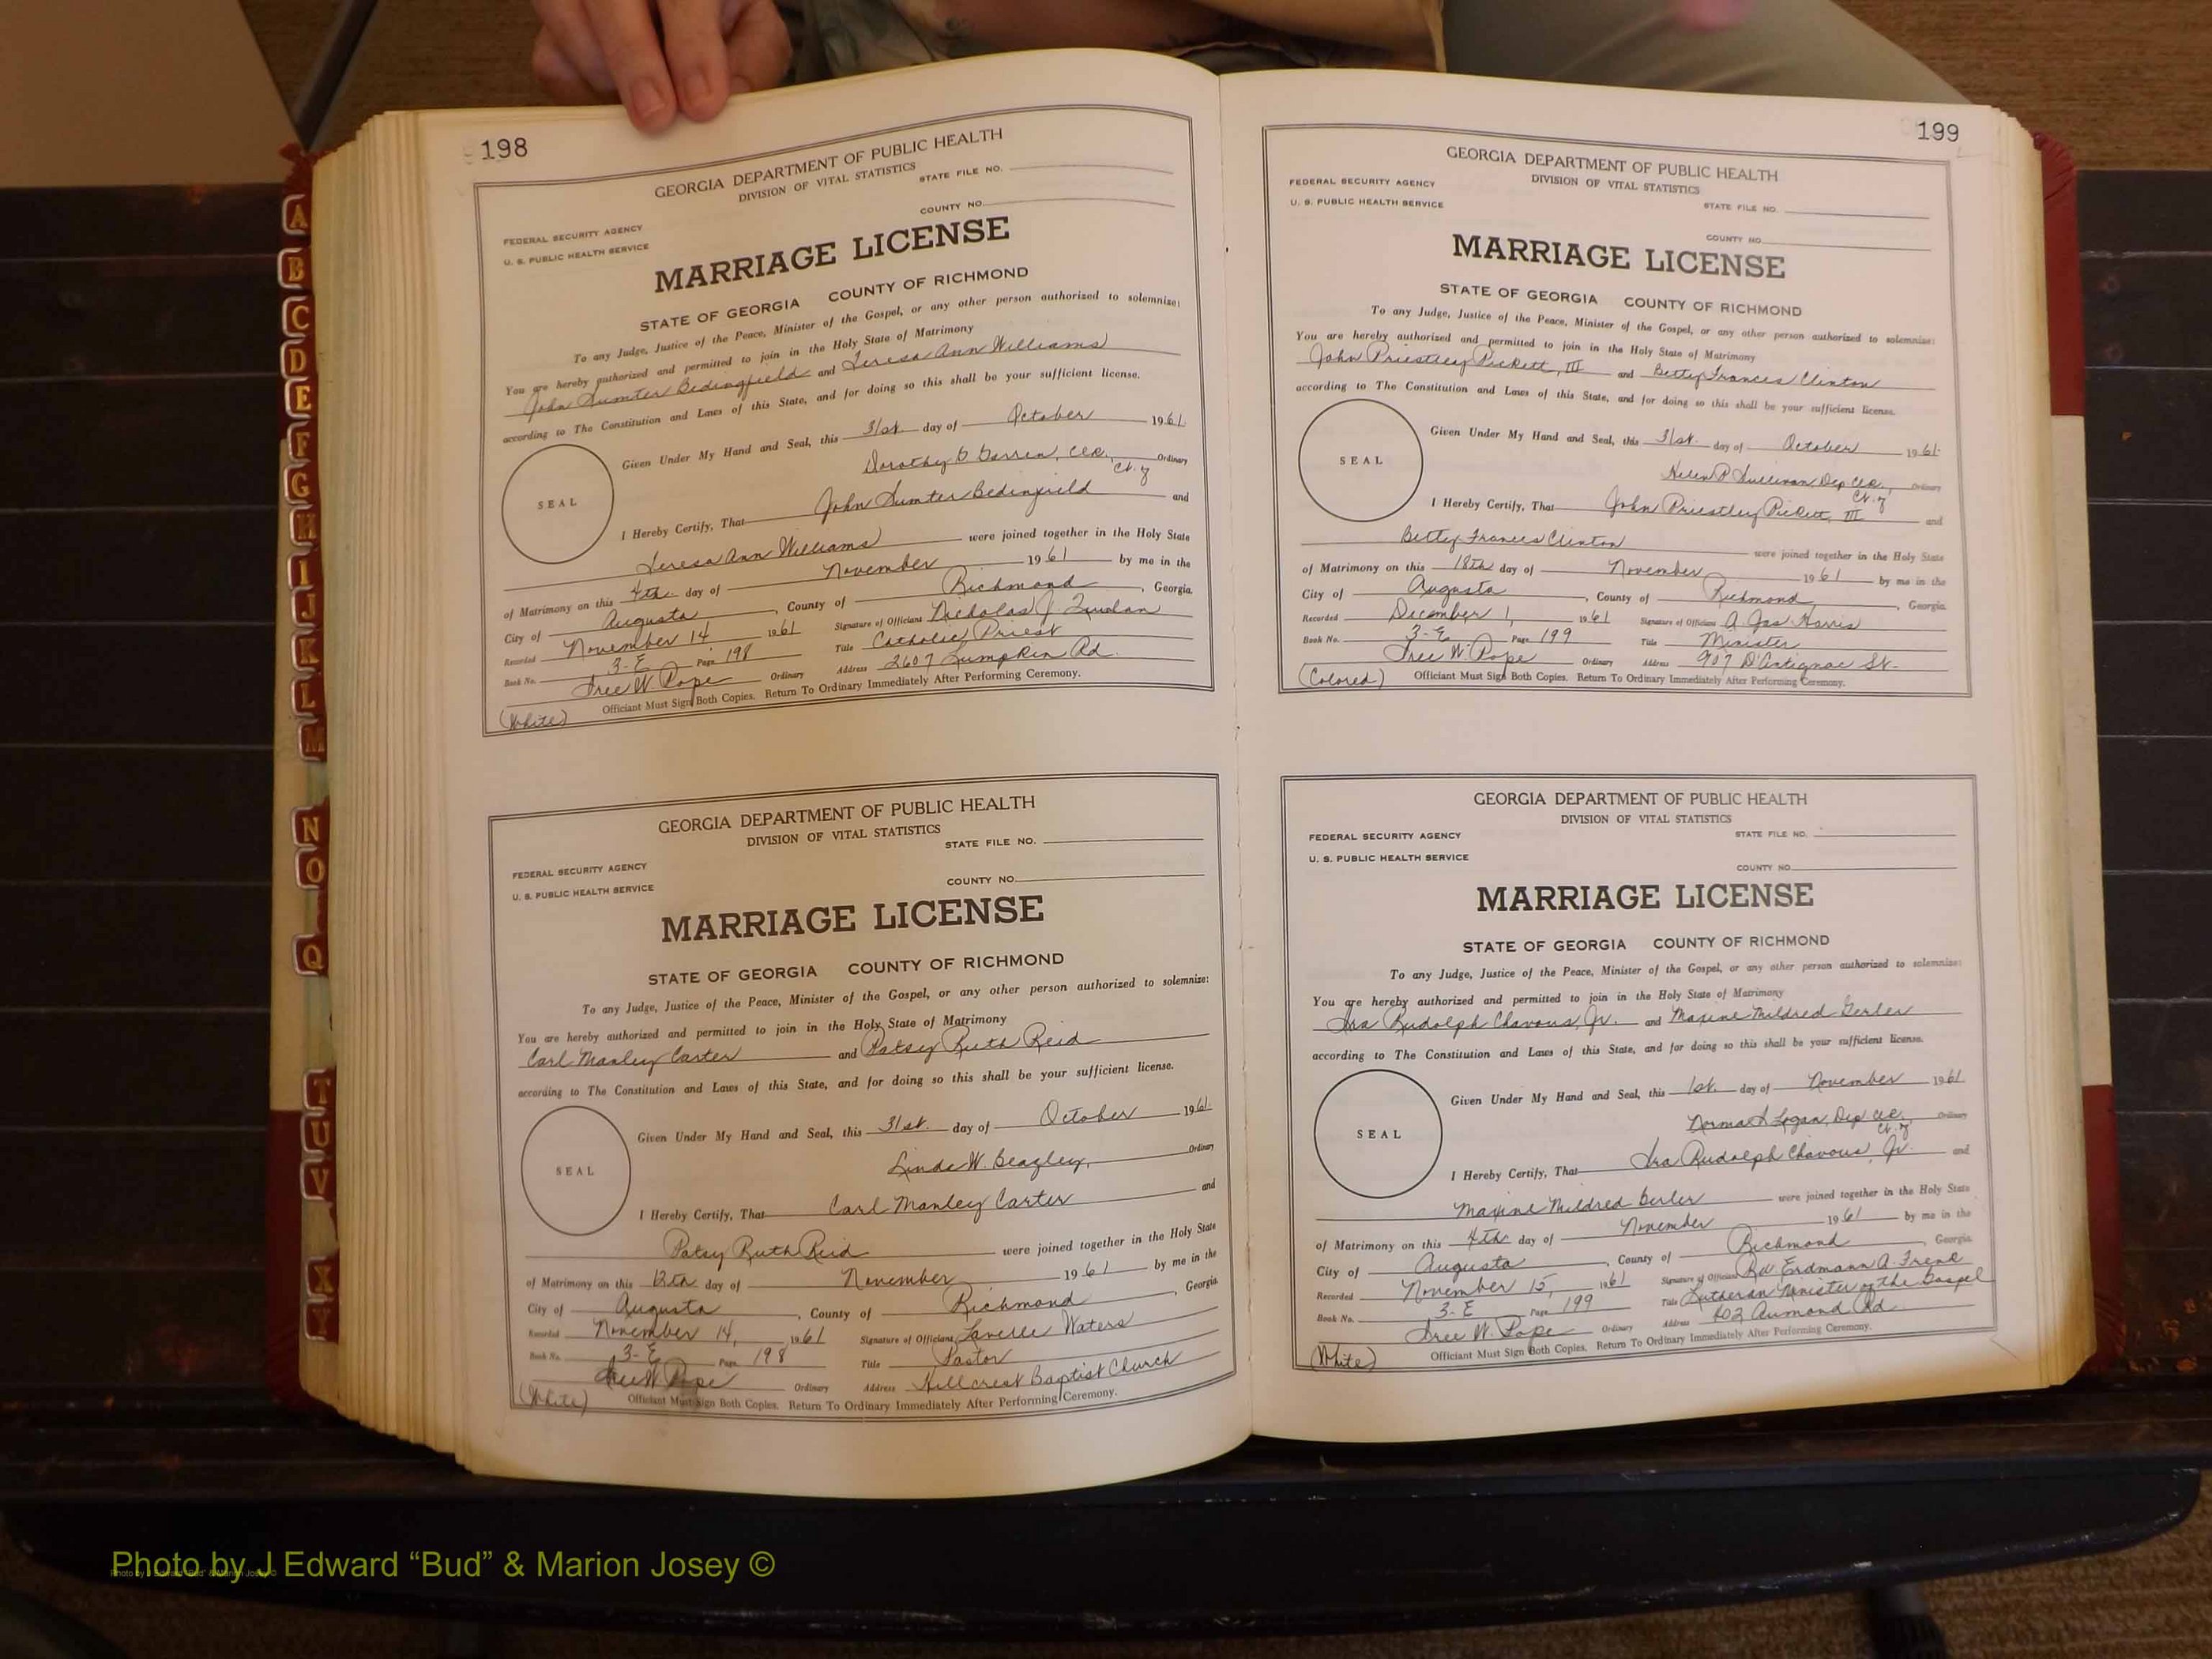 198
GEORGIA DEPARTMENT OF PUBLIC HEALTH
DIVISION OF VITAL STATISTICS
STATE FILE NO.
COUNTY NO.
FEDERAL SECURITY AGENCY
U. S. PUBLIC HEALTH SERVICE
MARRIAGE LICENSE
STATE OF GEORGIA COUNTY OF RICHMOND
To any Judge, Justice of the Peace, Minister of the Gospel, or any other person authorized to solemnize:
You are hereby authorized and permitted to join in the Holy State of Matrimony
John Sumter Bedingfield and Teresa Ann Williams
according to The Constitution and Laws of this State, and for doing so this shall be your sufficient license.
Given Under My Hand and Seal, this 31st. day of October 1961.
Dorothy B Barren, Clk. Ordinary
Ct. of
SEAL
I Hereby Certify, That John Sumter Bedingfield and
Teresa Ann Williams were joined together in the Holy State
of Matrimony on this 4th day of November 1961 by me in the
City of Augusta, County of Richmond, Georgia.
Recorded November 14 1961 Signature of Officiant Nicholas J. Quinlan
Book No. 3-E Page 198 Title Catholic Priest
Free W. Pope Ordinary Address 2607 Lumpkin Rd.
(White) Officiant Must Sign Both Copies. Return To Ordinary Immediately After Performing Ceremony.
GEORGIA DEPARTMENT OF PUBLIC HEALTH
DIVISION OF VITAL STATISTICS
STATE FILE NO.
FEDERAL SECURITY AGENCY
U. S. PUBLIC HEALTH SERVICE
COUNTY NO.
MARRIAGE LICENSE
STATE OF GEORGIA COUNTY OF RICHMOND
To any Judge, Justice of the Peace, Minister of the Gospel, or any other person authorized to solemnize:
You are hereby authorized and permitted to join in the Holy State of Matrimony
Carl Manley Carter and Patsy Ruth Reid
according to The Constitution and Laws of this State, and for doing so this shall be your sufficient license.
Given Under My Hand and Seal, this 31st. day of October 1961.
Linda W. Beazley, Ordinary
SEAL
I Hereby Certify, That Carl Manley Carter and
Patsy Ruth Reid were joined together in the Holy State
of Matrimony on this 12th day of November 1961 by me in the
City of Augusta, County of Richmond, Georgia.
Recorded November 14, 1961 Signature of Officiant Lavelle Waters
Book No. 3-E Page 198 Title Pastor
Free W. Pope Ordinary Address Hillcrest Baptist Church
(White) Officiant Must Sign Both Copies. Return To Ordinary Immediately After Performing Ceremony.
199
GEORGIA DEPARTMENT OF PUBLIC HEALTH
DIVISION OF VITAL STATISTICS
FEDERAL SECURITY AGENCY
U. S. PUBLIC HEALTH SERVICE
STATE FILE NO.
COUNTY NO.
MARRIAGE LICENSE
STATE OF GEORGIA COUNTY OF RICHMOND
To any Judge, Justice of the Peace, Minister of the Gospel, or any other person authorized to solemnize:
You are hereby authorized and permitted to join in the Holy State of Matrimony
John Priestley Pickett, III and Betty Frances Clinton
according to The Constitution and Laws of this State, and for doing so this shall be your sufficient license.
Given Under My Hand and Seal, this 31st. day of October 1961.
Helen P. Sullivan, Dep Clk., Ordinary
Ct. of
SEAL
I Hereby Certify, That John Priestley Pickett, III and
Betty Frances Clinton were joined together in the Holy State
of Matrimony on this 18th day of November 1961 by me in the
City of Augusta, County of Richmond, Georgia.
Recorded December 1, 1961 Signature of Officiant A. Jas Harris
Book No. 3-E Page 199 Title Minister
Free W. Pope Ordinary Address 907 D'Antignac St.
(Colored) Officiant Must Sign Both Copies. Return To Ordinary Immediately After Performing Ceremony.
GEORGIA DEPARTMENT OF PUBLIC HEALTH
DIVISION OF VITAL STATISTICS
FEDERAL SECURITY AGENCY
STATE FILE NO.
U. S. PUBLIC HEALTH SERVICE
COUNTY NO.
MARRIAGE LICENSE
STATE OF GEORGIA COUNTY OF RICHMOND
To any Judge, Justice of the Peace, Minister of the Gospel, or any other person authorized to solemnize:
You are hereby authorized and permitted to join in the Holy State of Matrimony
Ira Rudolph Chavous, Jr. and Maxine Mildred Gerler
according to The Constitution and Laws of this State, and for doing so this shall be your sufficient license.
Given Under My Hand and Seal, this 1st. day of November 1961
Norma S Logan, Dep. Clk. Ordinary
Ct. of
SEAL
I Hereby Certify, That Ira Rudolph Chavous, Jr. and
Maxine Mildred Gerler were joined together in the Holy State
of Matrimony on this 4th day of November 1961 by me in the
City of Augusta, County of Richmond, Georgia.
Recorded November 15, 1961 Signature of Officiant Rev Erdmann A. Frenk
Book No. 3-E Page 199 Title Lutheran Minister of the Gospel
Free W. Pope Ordinary Address 802 Aumond Rd.
(White) Officiant Must Sign Both Copies. Return To Ordinary Immediately After Performing Ceremony.
A
B
C
D
E
F
G
H
I
J
K
L
M
N
O
Q
T
U
V
X
Y
Photo by J Edward “Bud” & Marion Josey ©
Photo by J Edward “Bud” & Marion Josey ©